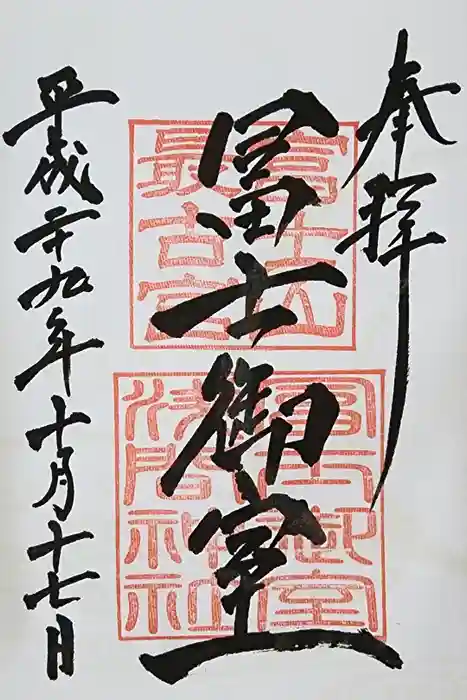 奉拝
冨士御室
富士山
最古宮
富士御室
浅間神社
平成二十九年十月十七日